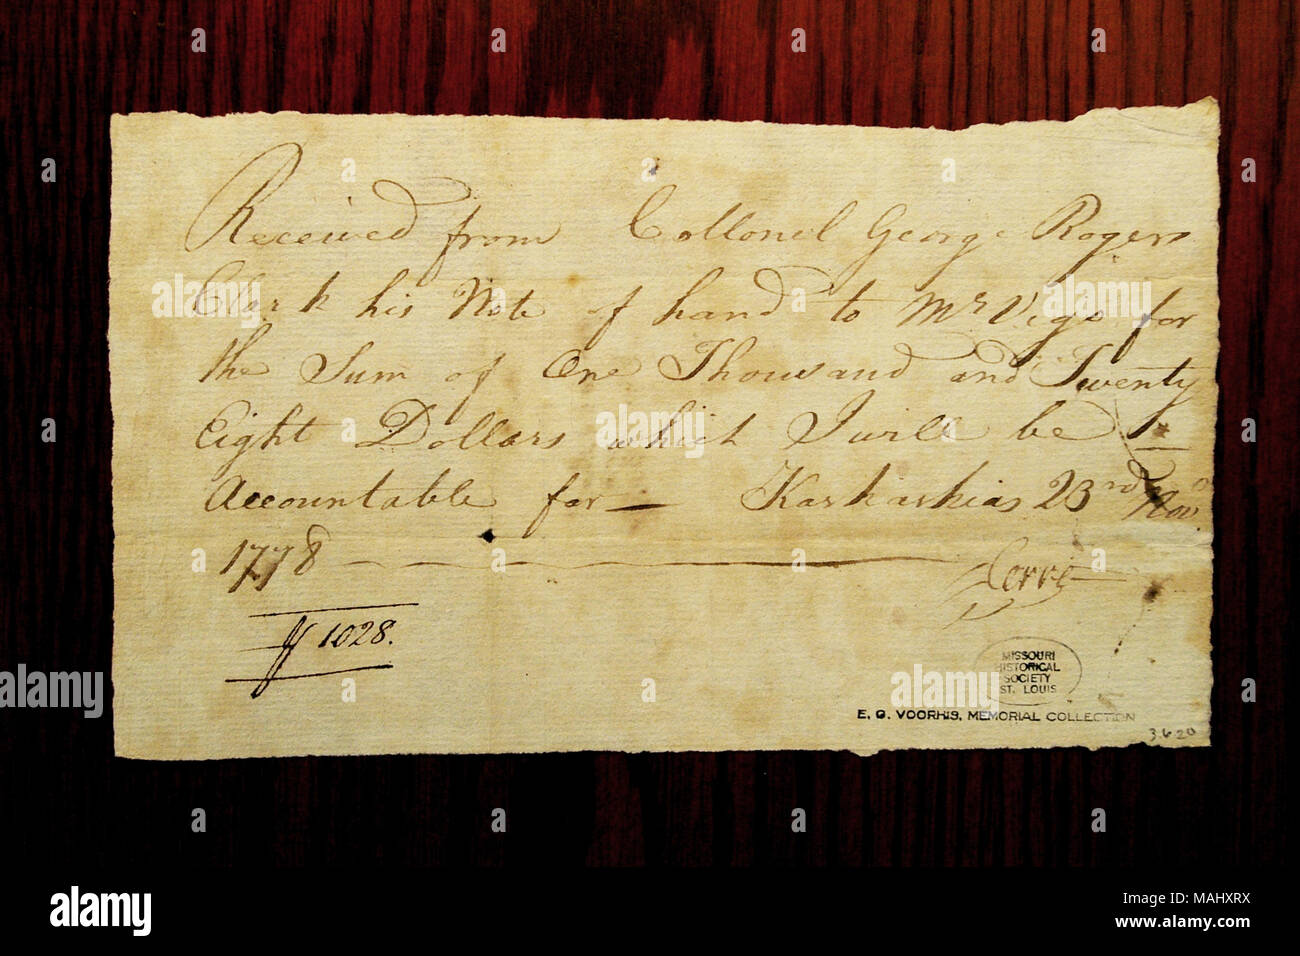 Received from Collonel George Rogers
Clark his Note of hand to Mr Vigo for
the Sum of One Thousand and Twenty
Eight Dollars which I will be
Accountable for — Kaskaskias 23rd Nov
1778 — Cerré
1028.
MISSOURI
HISTORICAL
SOCIETY
ST. LOUIS
E. G. VOORHIS, MEMORIAL COLLECTION
3620
alamy
alamy
Image ID: MAHXRX
www.alamy.com